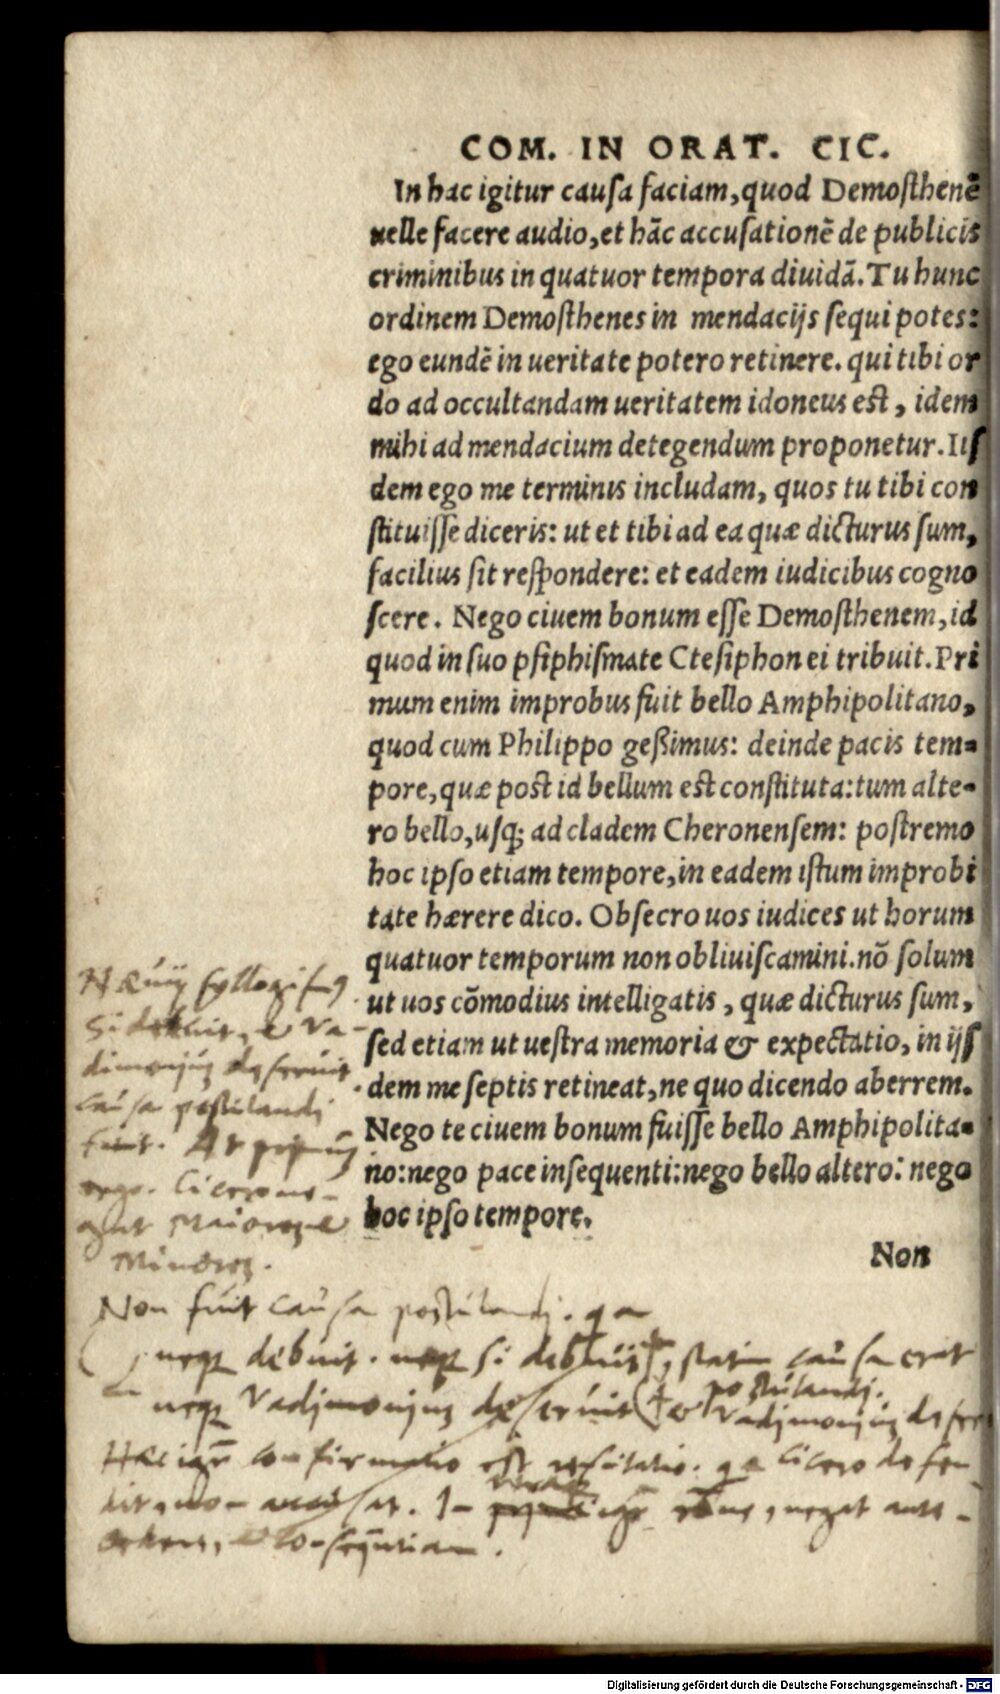 COM. IN ORAT. CIC.
In hac igitur causa faciam, quod Demosthenē
uelle facere audio, et hāc accusationē de publicis
criminibus in quatuor tempora diuidā. Tu hunc
ordinem Demosthenes in mendacijs sequi potes:
ego eundē in ueritate potero retinere. qui tibi or
do ad occultandam ueritatem idoneus est, idem
mihi ad mendacium detegendum proponetur. Iis
dem ego me terminis includam, quos tu tibi con
stituisse diceris: ut et tibi ad ea quæ dicturus sum,
facilius sit respondere: et eadem iudicibus cogno
scere. Nego ciuem bonum esse Demosthenem, id
quod in suo psiphismate Ctesiphon ei tribuit. Pri
mum enim improbus fuit bello Amphipolitano,
quod cum Philippo geßimus: deinde pacis tem-
pore, quæ post id bellum est constituta: tum alte-
ro bello, usq; ad cladem Cheronensem: postremo
hoc ipso etiam tempore, in eadem istum improbi
tate hærere dico. Obsecro uos iudices ut horum
quatuor temporum non obliuiscamini. nō solum
ut uos cōmodius intelligatis, quæ dicturus sum,
sed etiam ut uestra memoria & expectatio, in ijs
dem me septis retineat, ne quo dicendo aberrem.
Nego te ciuem bonum fuisse bello Amphipolita-
no: nego pace insequenti: nego bello altero: nego
hoc ipso tempore.
Non
Næuij syllogis
Si debuit, & Va-
dimonijum deseruit
causa postulandi
fuit. At
ergo. Cicero ne-
gat Maiorem &
Minorem.
Non fuit causa postulandi. qa
neque debuit. neque si debuit, statim causa erat
postulandi.
neque Vadimonijum deseruit & Vadimonijum
Hæc confirmatio est refutatio. qa Cicero defen
dit, non accusat. In negat ante-
&